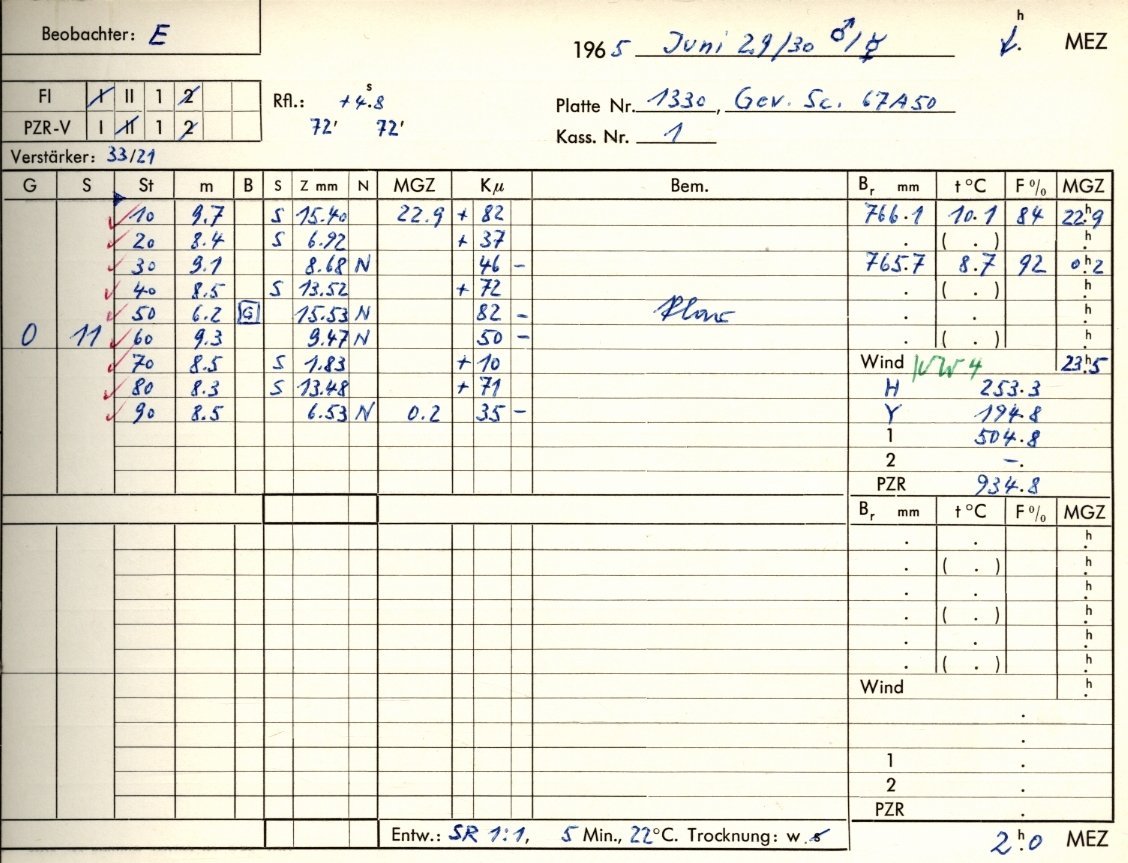 Beobachter: E
1965 Juni 29/30 ♂/☿ h MEZ
FI I II 1 2
Rfl.: +4.8 s
Platte Nr. 1330, Gev. Sc. 67A50
PZR-V I II 1 2
72' 72'
Kass. Nr. 1
Verstärker: 33/21
G S St m B S Z mm N MGZ Kμ Bem. Br mm t °C F % MGZ
10 9.7 S 15.40 22.9 + 82 766.1 10.1 84 22.9 h
20 8.4 S 6.92 + 37 . ( . ) h .
30 9.1 8.68 N 46 - 765.7 8.7 92 0.2 h
40 8.5 S 13.52 + 72 . ( . ) h .
50 6.2 G 15.53 N 82 - . . h .
0 11 60 9.3 9.47 N 50 - . ( . ) h .
70 8.5 S 1.83 + 10 Wind NW 4 23.5 h
80 8.3 S 13.48 + 71 H 253.3
90 8.5 6.53 N 0.2 35 - Y 194.8
1 504.8
2 -.
PZR 934.8
Br mm t °C F % MGZ
. . h .
. ( . ) h .
. . h .
. ( . ) h .
. . h .
. ( . ) h .
Wind h .
.
.
1 .
2 .
PZR .
Entw.: SR 1:1, 5 Min., 22°C. Trocknung: w s
2.0 h MEZ